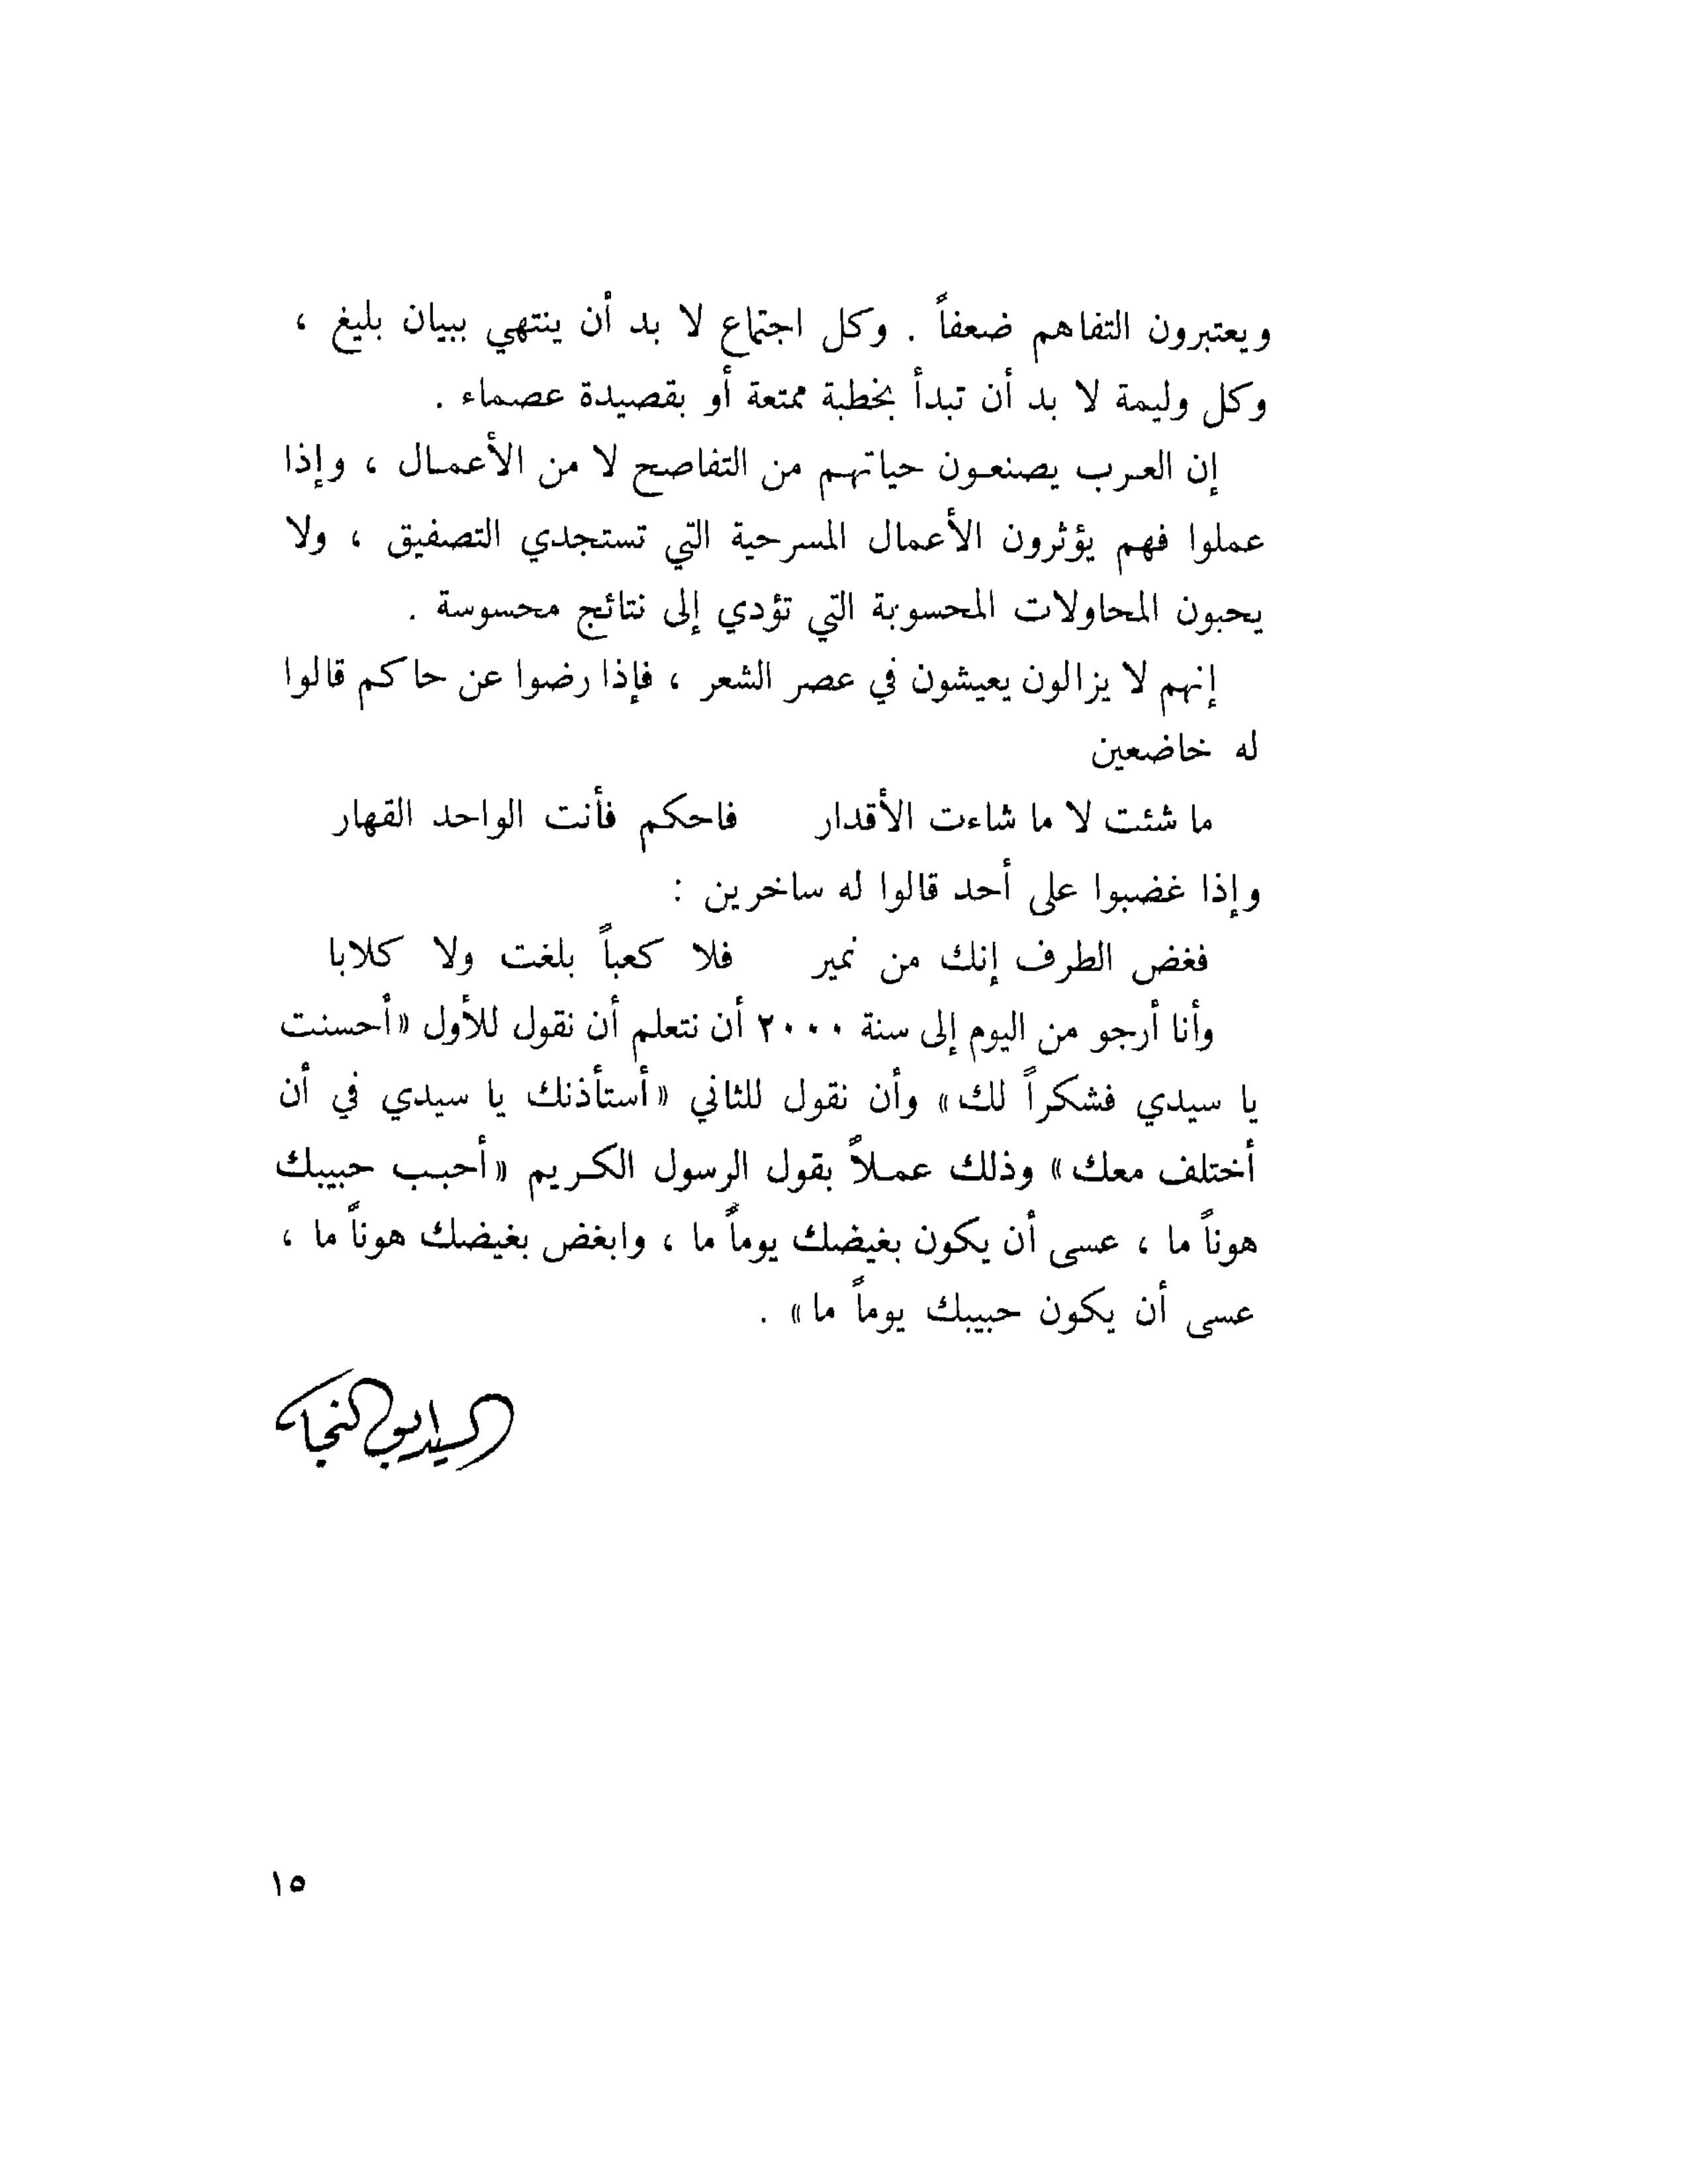 ويعتبرون التفاهم ضعفاً . وكل اجتماع لا بد أن ينتهي ببيان بليغ ،
وكل وليمة لا بد أن تبدأ بخطبة ممتعة أو بقصيدة عصماء .
إن العرب يصنعون حياتهم من التفاصح لا من الأعمال ، وإذا
عملوا فهم يؤثرون الأعمال المسرحية التي تستجدي التصفيق ، ولا
يحبون المحاولات المحسوبة التي تؤدي إلى نتائج محسوسة .
إنهم لا يزالون يعيشون في عصر الشعر ، فإذا رضوا عن حاكم قالوا
له خاضعين
ما شئت لا ما شاءت الأقدار فاحكم فأنت الواحد القهار
وإذا غضبوا على أحد قالوا له ساخرين :
فغض الطرف إنك من نمير فلا كعباً بلغت ولا كلابا
وأنا أرجو من اليوم إلى سنة ٢٠٠٠ أن نتعلم أن نقول للأول «أحسنت
يا سيدي فشكراً لك» وأن نقول للثاني «أستأذنك يا سيدي في أن
أختلف معك» وذلك عملاً بقول الرسول الكريم «أحبب حبيبك
هوناً ما ، عسى أن يكون بغيضك يوماً ما ، وابغض بغيضك هوناً ما ،
عسى أن يكون حبيبك يوماً ما» .
السيد أبو النجا
١٥